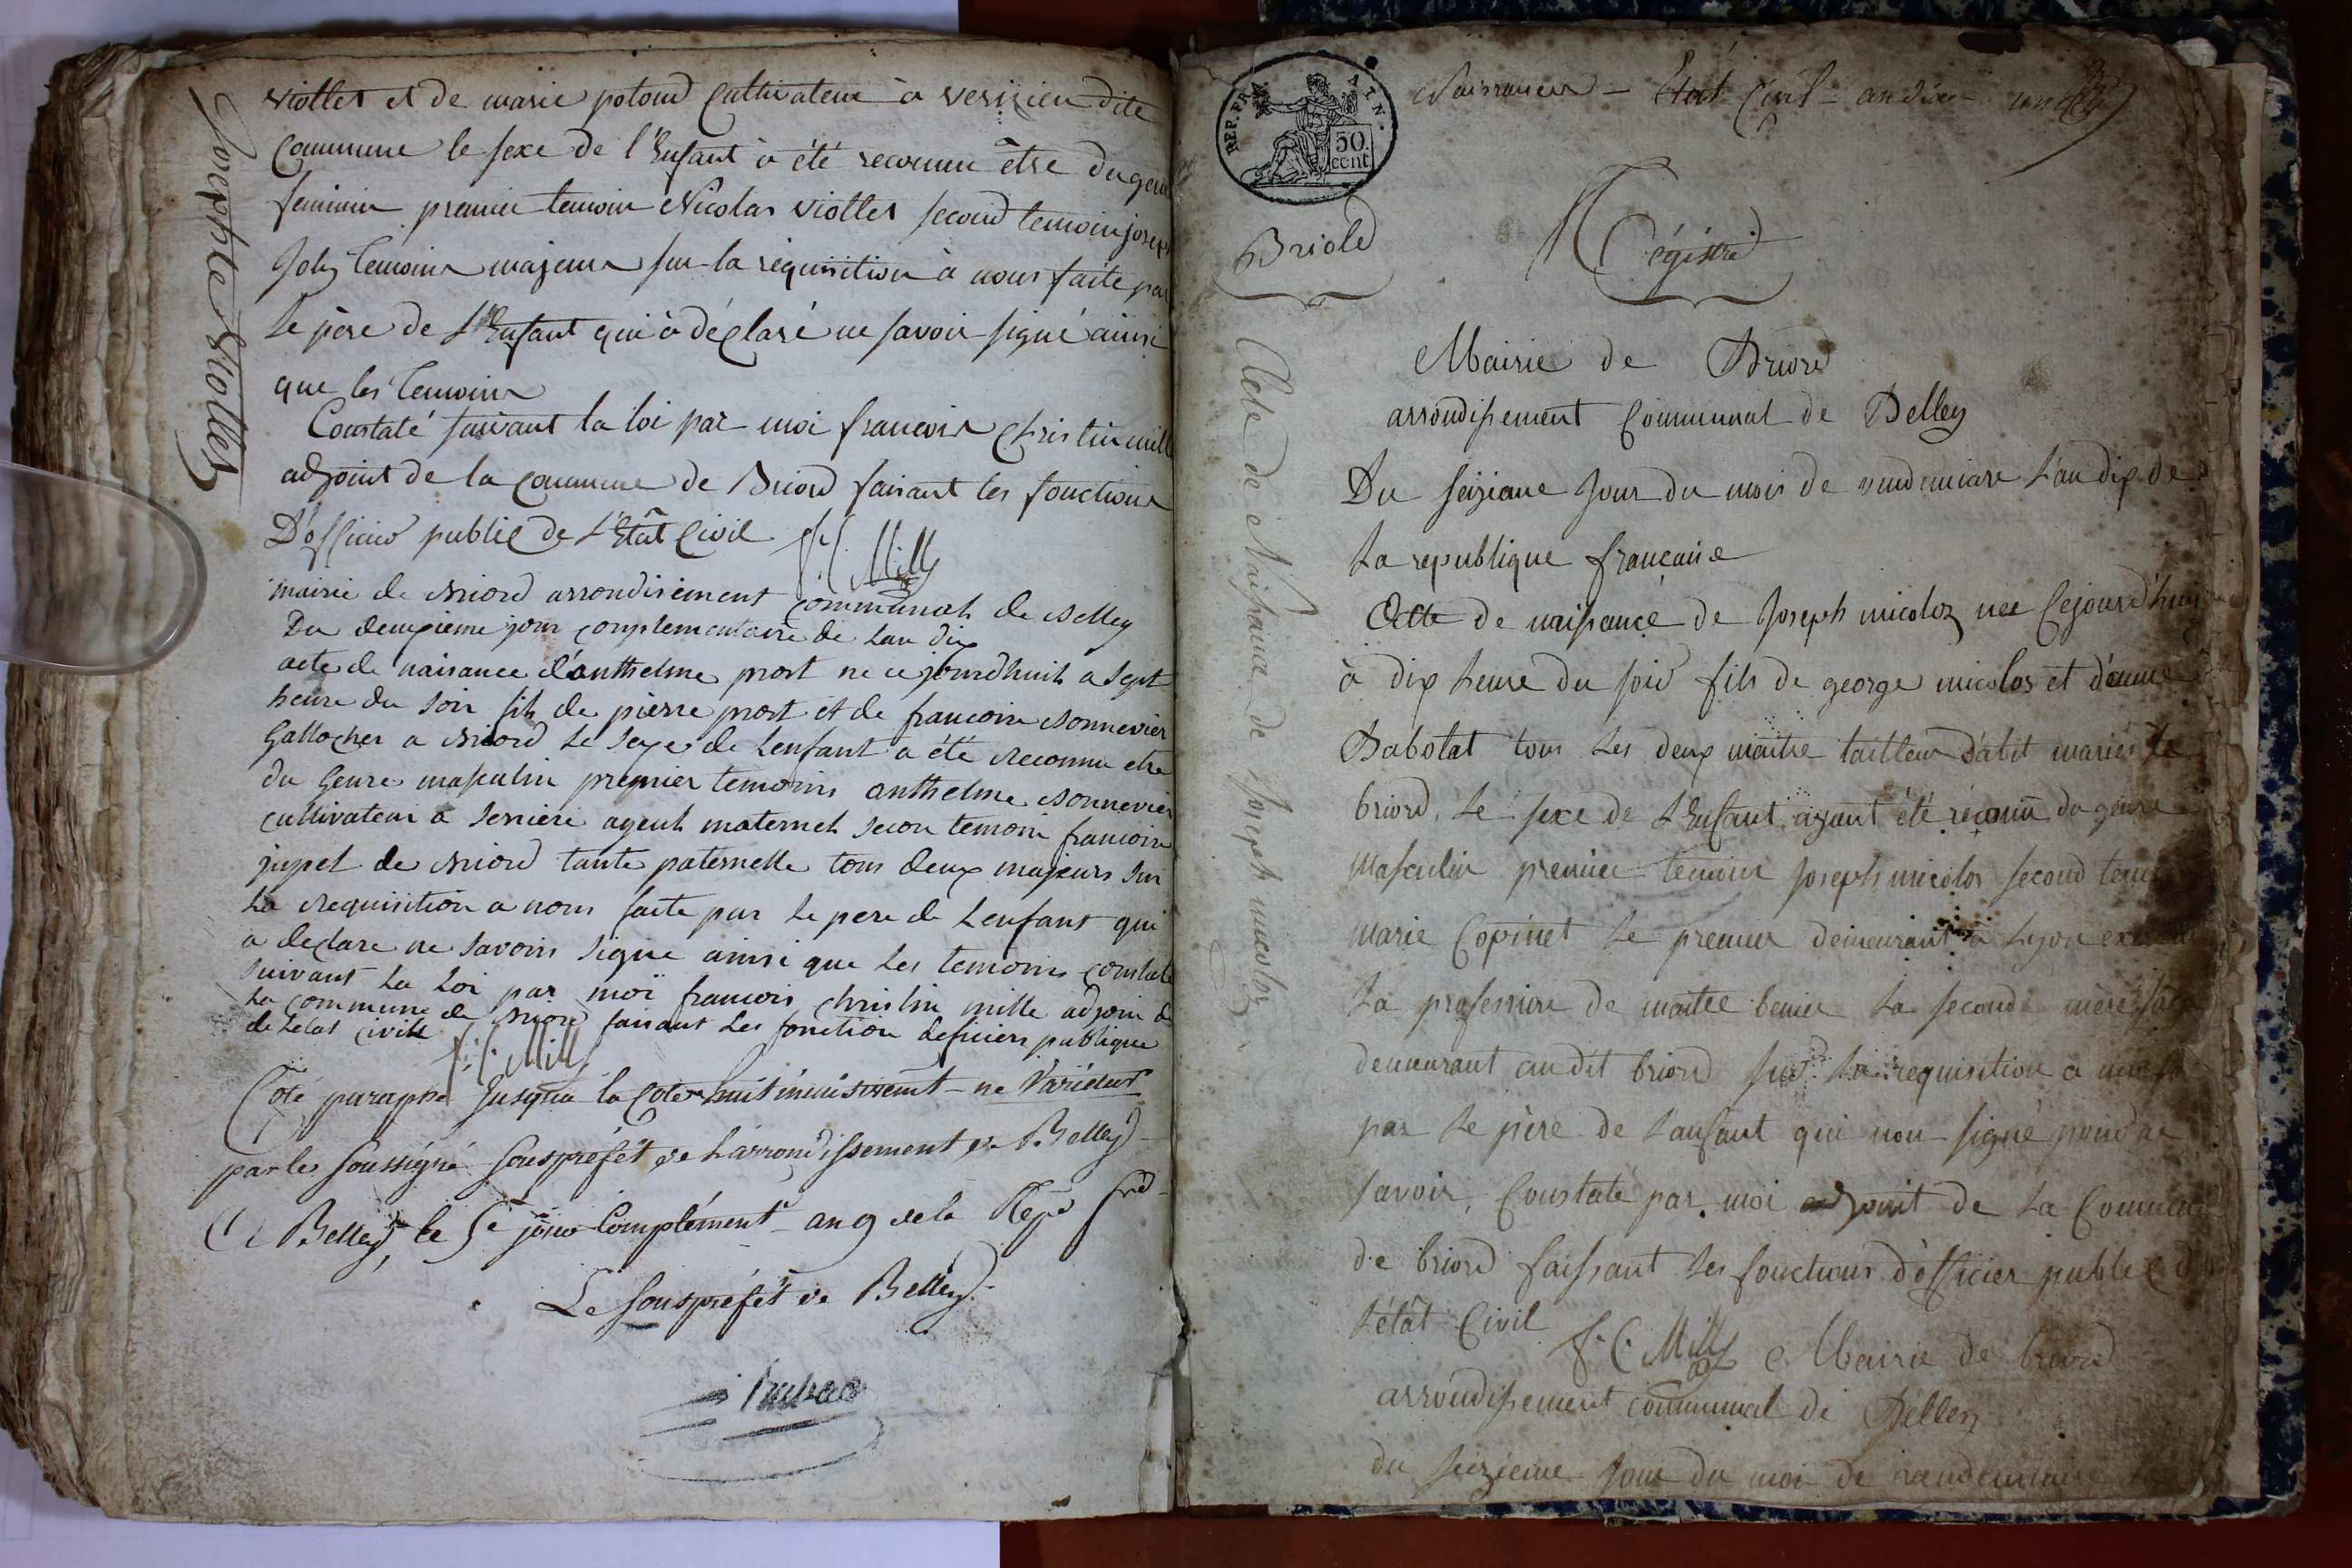 Josephte Viollet
viollet et de marie potoud Cultivateur à verizieu dite
Commune le sexe de l'Enfant à été reconnu être du genre
feminin premier temoin Nicolas viollet second temoin joseph
Joly temoins majeurs sur la réquisition à nous faite par
Le père de L'Enfant qui à déclaré ne savoir signé ainsi
que les temoins
Constaté suivant la loi par moi francois Christin mille
adjoint de la Commune de Briord faisant les fonctions
D'officier public de L'Etât Civil F. C. Mille
mairie de Briord arrondisement communal de Belley
Du deuxieme jour complementaire de Lan dix
acte de naisance d'anthelme prost ne ce jourdhuit a sept
heure du soir fils de pierre prost et de francoise Bonnevier
Gallocher a Briord Le sexe de Lenfant a été reconnu etre
du Genre masculin premier temoins anthelme Bonnevier
cultivateur a serriere maternel secon temoin francoise
jupet de Briord tante paternelle tous deux majeurs sur
La requisition a nous faite par Le pere de Lenfant qui
a declare ne savoir signe ainsi que Les temoins constate
suivant La Loi par moi francois christin mille adjoin de
La commune de Briord faisant Les fonction deficiers publique
de Letat civile F. C. Mille
Coté paraphé Jusqu'a la Cote huit ne Varietur
par le soussigné souspréfét de L'arrondissement de Belley
A Belley, le 5e jour Complément.re an 9 de la Repu. fr.
Le souspréfét de Belley
REP. FRA.
50.
cent.
Naissances - Etat Civil - an dix -
Briord
Régistre
Acte de Naissance de Joseph micolos
Mairie de Briord
arrondissement Communal de Belley
Du seizieme Jour du mois de vendemiare L'an dix de
La republique francaise
Acte de naissance de Joseph micoloz née Cejourd'huy
à dix heure du soir fils de george micolos et d'anne
Babolat tous Les deux maitre tailleur d'abit mariés de
briord, Le sexe de L'Enfant ayant été reconu du genre
masculin premier temoin Joseph micolos second temoin
marie Copinet Le premier demeurant a Lyon
La profession de maitre La seconde mère sage
demeurant audit briord sur La requisition a
par Le père de Lanfant qui non signé pour ne
savoir, Constaté par moi adjoint de La Commune
de briord faissant Les fonctions d'officier public de
L'étât Civil F. C. Mille Mairie de briord
arrondissement communal de Belley
du seizieme Jour du moi de vandemiaire